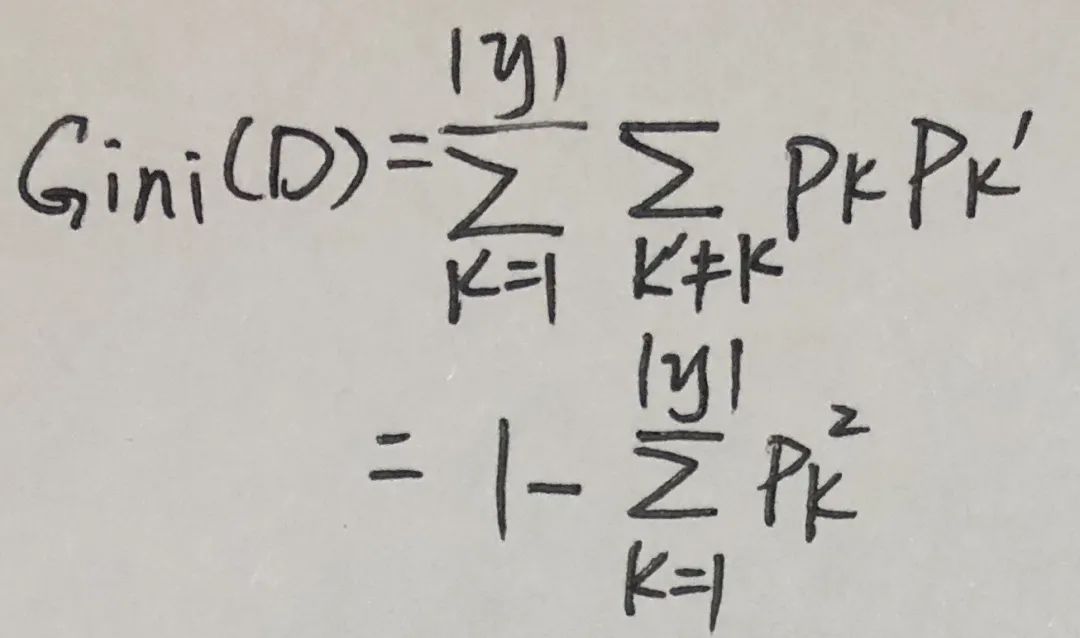 Gini(D) = \sum_{k=1}^{|y|} \sum_{k' \neq k} p_k p_{k'}
= 1 - \sum_{k=1}^{|y|} p_k^2